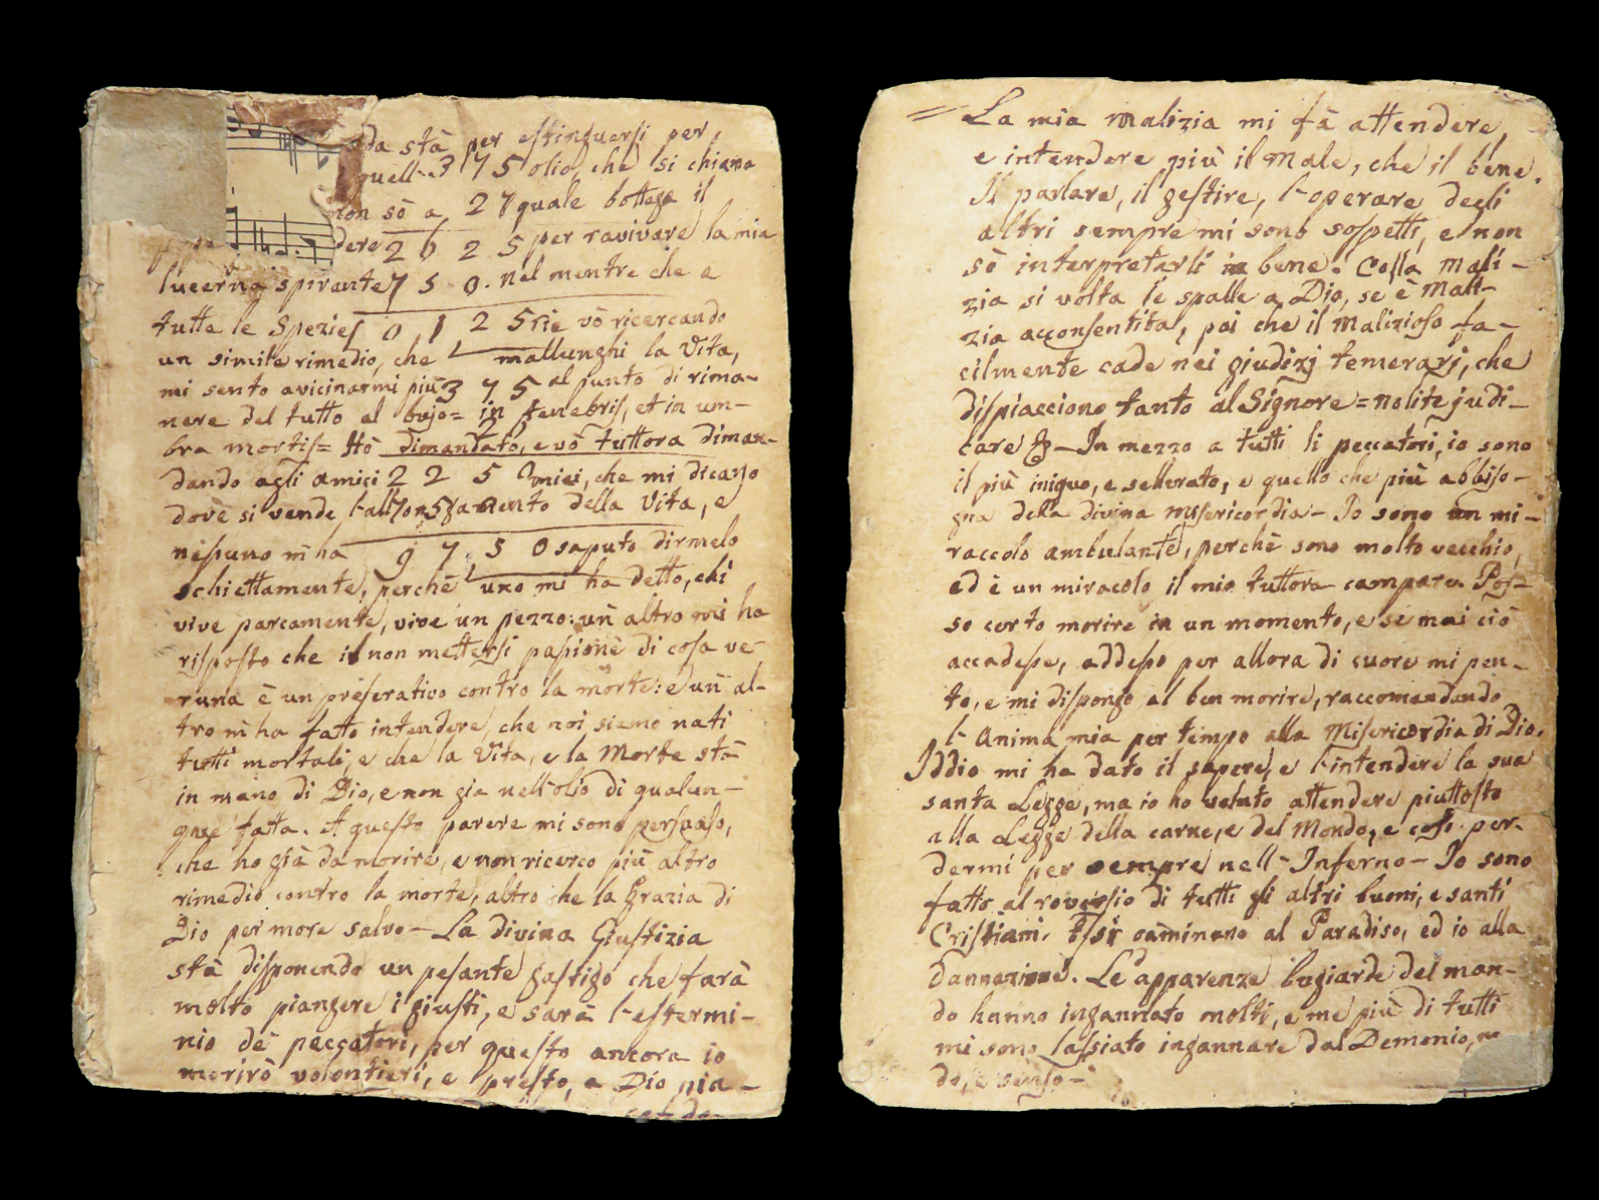 ada stà per estinguersi per
quell- 3 7 5 olio, che si chiama
non sò a 2 7 quale bottega il
dere 2 6 2 5 per ravivare la mia
lucerna spirante 7 5 0. nel mentre che a
tutte le Spezies 0 1 2 5 rie vò ricercando
un simile rimedio, che mallunghi la Vita,
mi sento avicinarmi più 3 7 5 al punto di rima-
nere del tutto al bujo= in tenebris, et in um-
bra mortis= Hò dimandato, e vò tuttora diman-
dando agli amici 2 2 5 0 miei, che mi dicano
dovè si vende l-allongamento della Vita, e
nessuno m̄ ha 9 7 5 0 saputo dirmelo
schiettamente, perchè uno mi ha detto, chi
vive parcamente, vive un pezzo: un altro mi ha
risposto che il non mettersi passione di cosa ve-
runa è un preserativo contro la morte: e un al-
tro m̄ ha fatto intendere, che noi siamo nati
tutti mortali, e che la Vita, e la Morte stà
in mano di Dio, e non gia nell'olio di qualun-
que fatta. A questo parere mi sono persuaso,
che ho già da morire, e non ricerco più altro
rimedio contro la morte, altro che la Grazia di
Dio per more salvo - La divina Giustizia
stà disponendo un pesante gastigo che farà
molto piangere i giusti, e sarà l-estermi-
nio dè peccatori, per questo ancora io
morirò volontieri, e presto, a Dio pia-
cendo-
= La mia malizia mi fà attendere,
e intendere più il Male, che il bene.
Il parlare, il gestire, l-operare degli
altri sempre mi sono sospetti, e non
sò interpretarli in bene. Colla Mali-
zia si volta le spalle a Dio, se è Mali-
zia acconsentita, poi che il Malizioso fa-
cilmente cade nei giudizj temerarj, che
dispiacciono tanto al Signore = nolite judi-
care &- In mezzo a tutti li peccatori, io sono
il più iniquo, e sellerato, e quello che più abbiso-
gna della divina misericordia - Io sono un mi-
raccolo ambulante, perchè sono molto vecchio,
ed è un miracolo il mio tuttora campare. Pos-
so certo morire in un momento, e se mai ciò
accadesse, addesso per allora di cuore mi pen-
to, e mi dispongo al ben morire, raccomandando
l- Anima mia per tempo alla Misericordia di Dio.
Iddio mi ha dato il sapere, e l-intendere la sua
santa Legge, ma io ho veluto attendere piuttosto
alla Legge della carne, e del Mondo, e cosi per-
dermi per sempre nell- Inferno - Io sono
fatto al roversio di tutti gli altri buoni, e santi
Cristiani. Essi caminano al Paradiso, ed io alla
dannazione. Le apparenze bugiarde del mon-
do hanno ingannato molti, e me più di tutti
mi sono lassiato ingannare dal Demonio,
do, e senso-